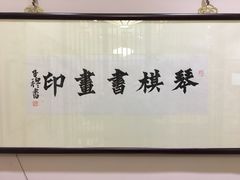 琴棋書畫印